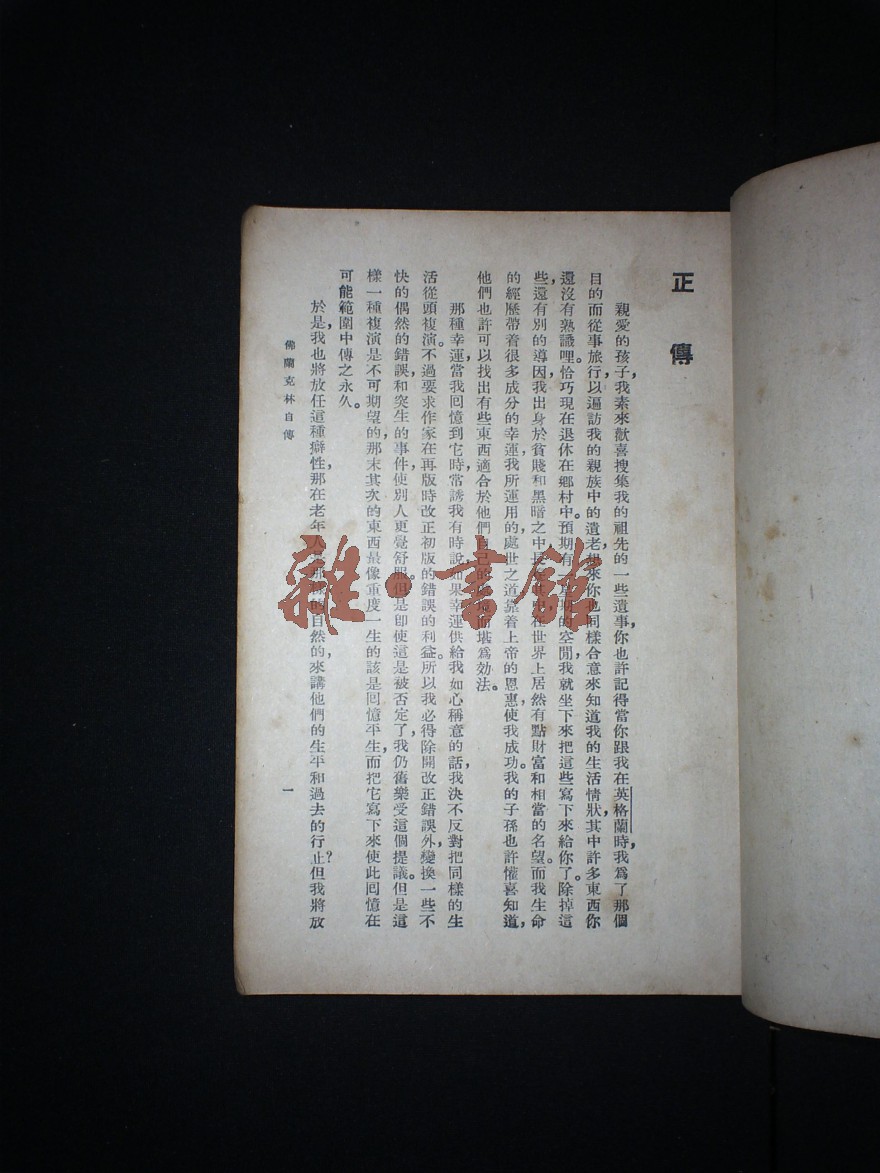 正傳
親愛的孩子，我素來歡喜搜集我的祖先的一些遺事，你也許記得當你跟我在英格蘭時，我爲了那個
目的而從事旅行，以遍訪我的親族中的遺老。想來你也同樣合意來知道我的生活情狀，其中許多東西你
還沒有熟識哩。恰巧現在退休在鄉村中。預期有一星期的空閒，我就坐下來把這些寫下來給你了。除掉這
些，還有別的導因，我出身於貧賤和黑暗之中，長在其中，在世界上居然有點財富和相當的名望。而我生命
的經歷帶着很多成分的幸運，我所運用的處世之道，靠着上帝的恩惠，使我成功。我的子孫也許懽喜知道，
他們也許可以找出有些東西適合於他們自己的 而堪爲効法。
那種幸運，當我回憶到它時，常誘我有時說：如果幸運供給我如心稱意的話，我決不反對把同樣的生
活從頭複演。不過要求作家在再版時改正初版的錯誤的利益。所以我必得除開改正錯誤外，變換一些不
快的偶然的錯誤，和突生的事件，使別人更覺舒服。但是即使這是被否定了，我仍舊樂受這個提議。但是這
樣一種複演是不可期望的，那末其次的東西最像重度一生的該是回憶平生，而把它寫下來使此回憶在
可能範圍中傳之永久。
於是，我也將放任這種癖性，那在老年人是那樣的自然的，來講他們的生平和過去的行止？但我將放
佛蘭克林自傳
一
雜·書館